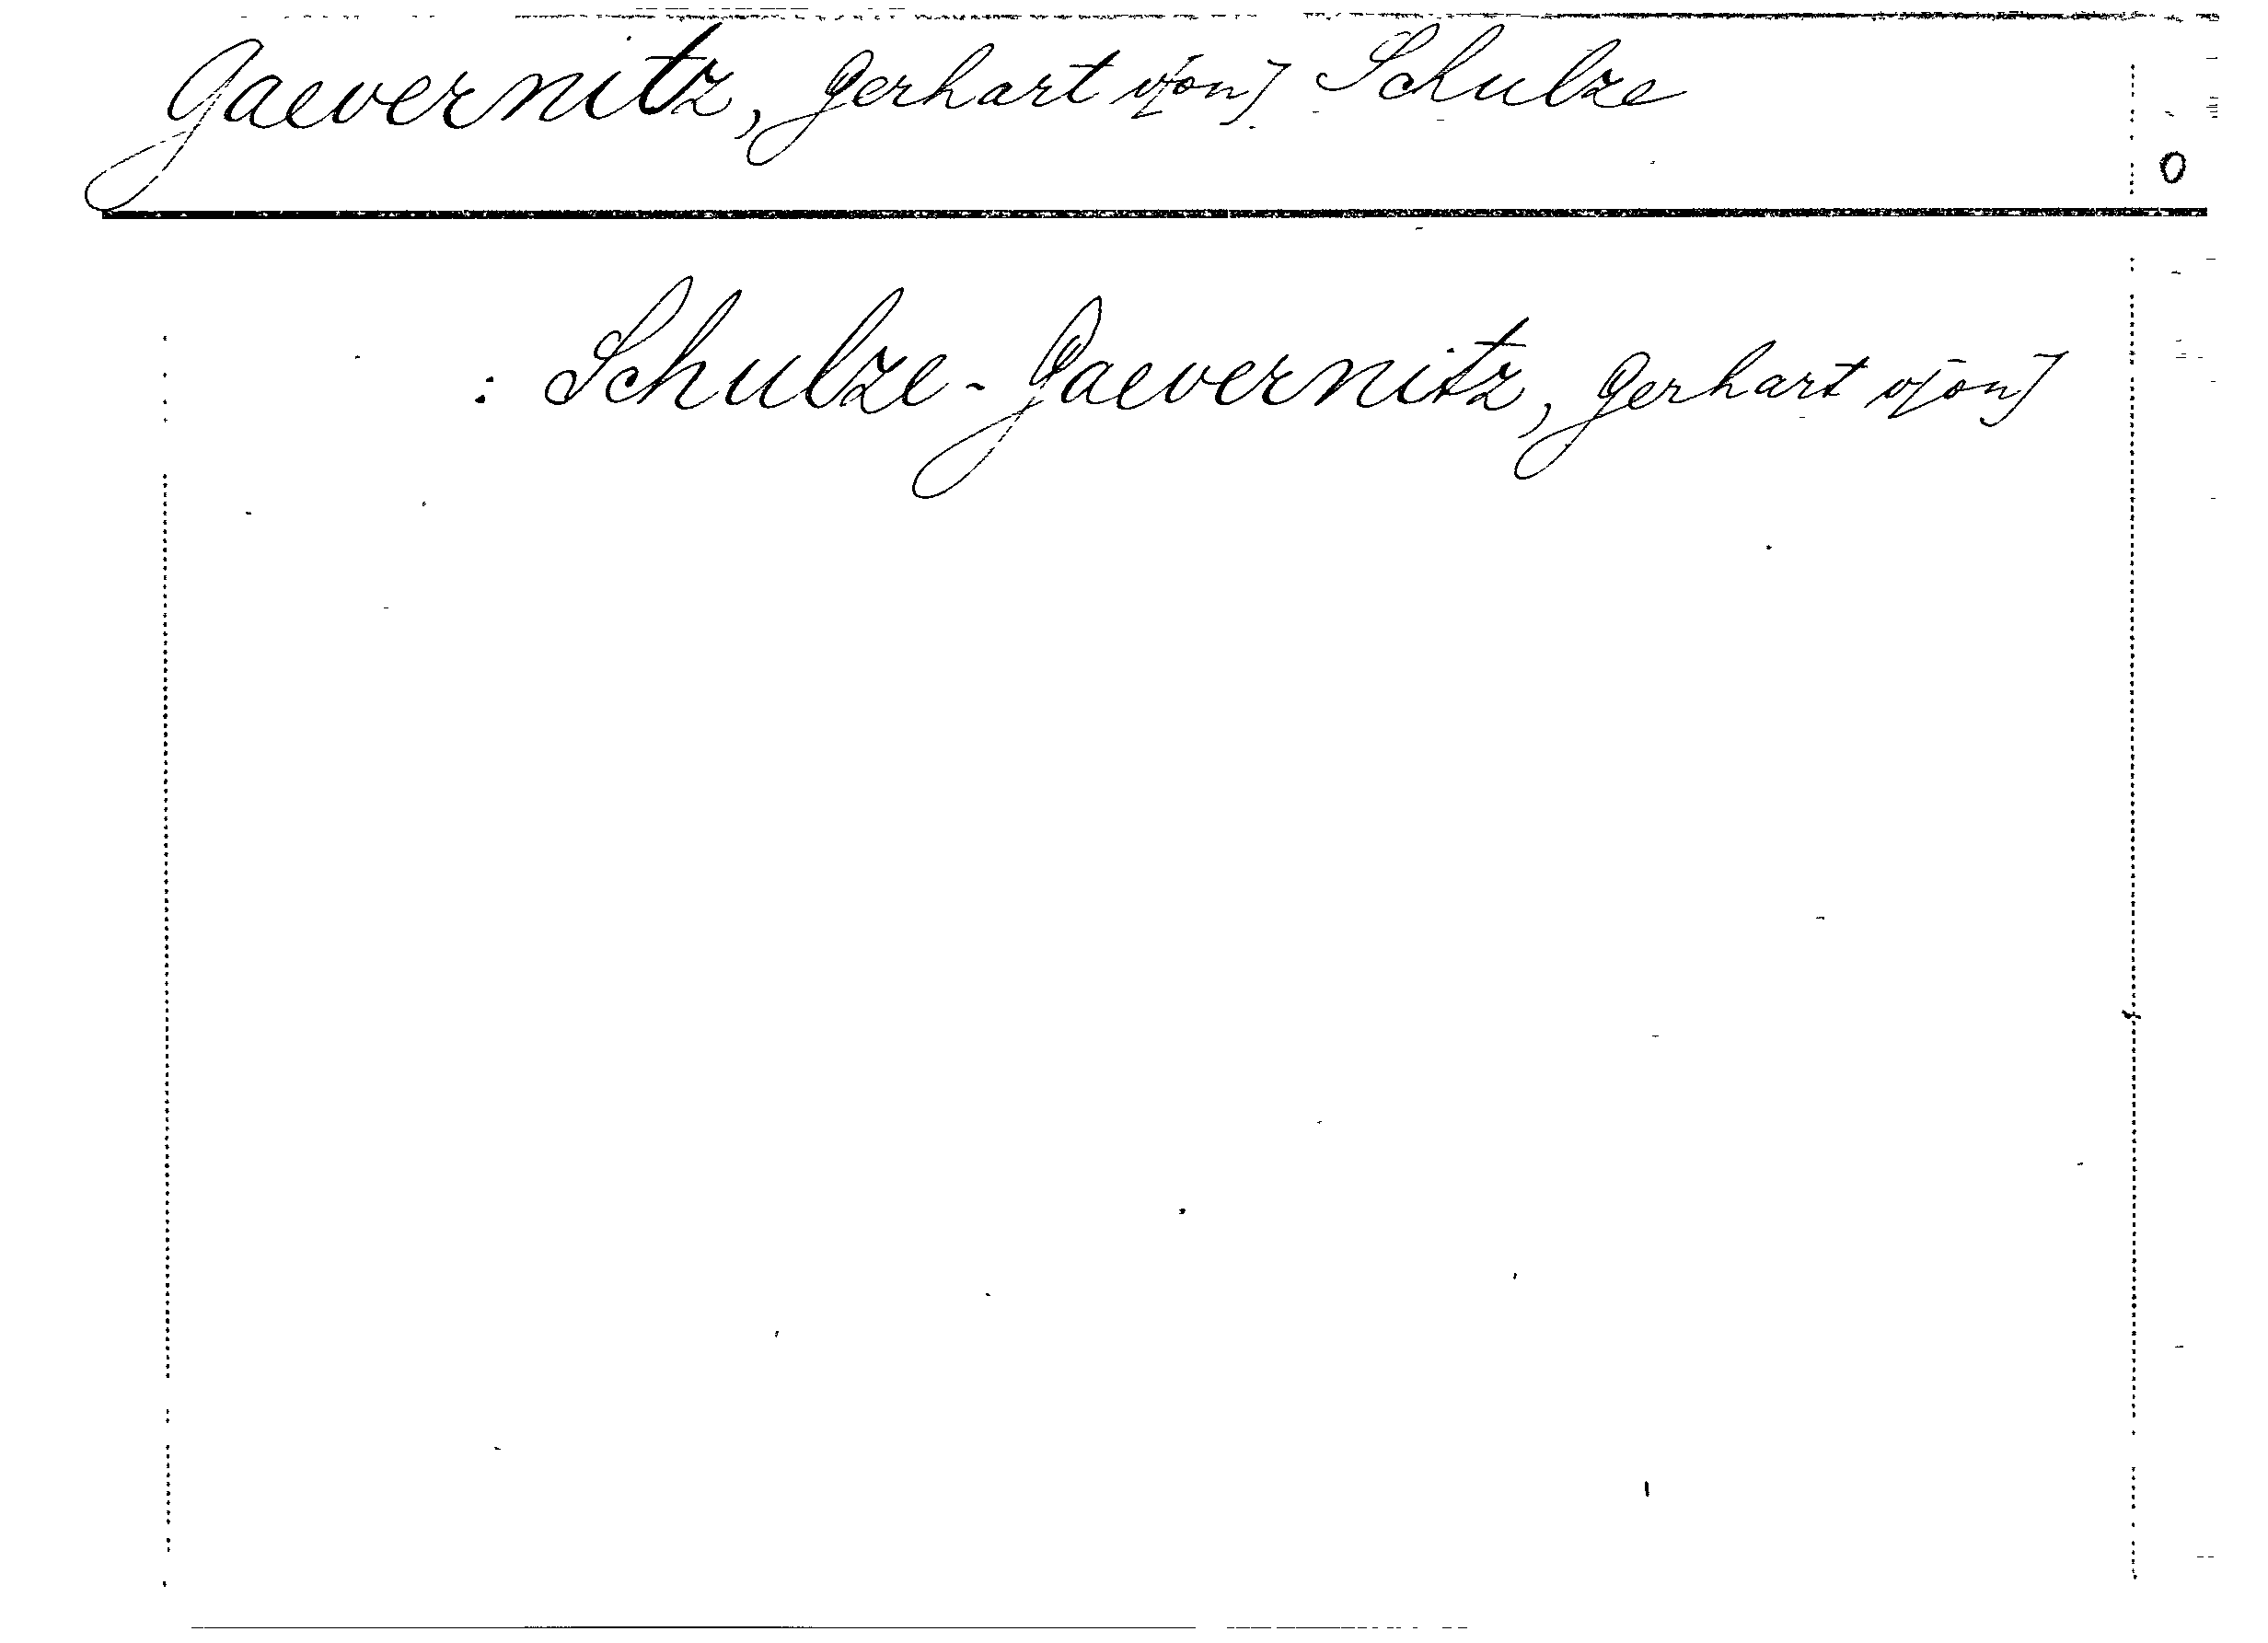 Gaevernitz, Gerhart v[on] Schulze
0
: Schulze-Gaevernitz, Gerhart v[on]